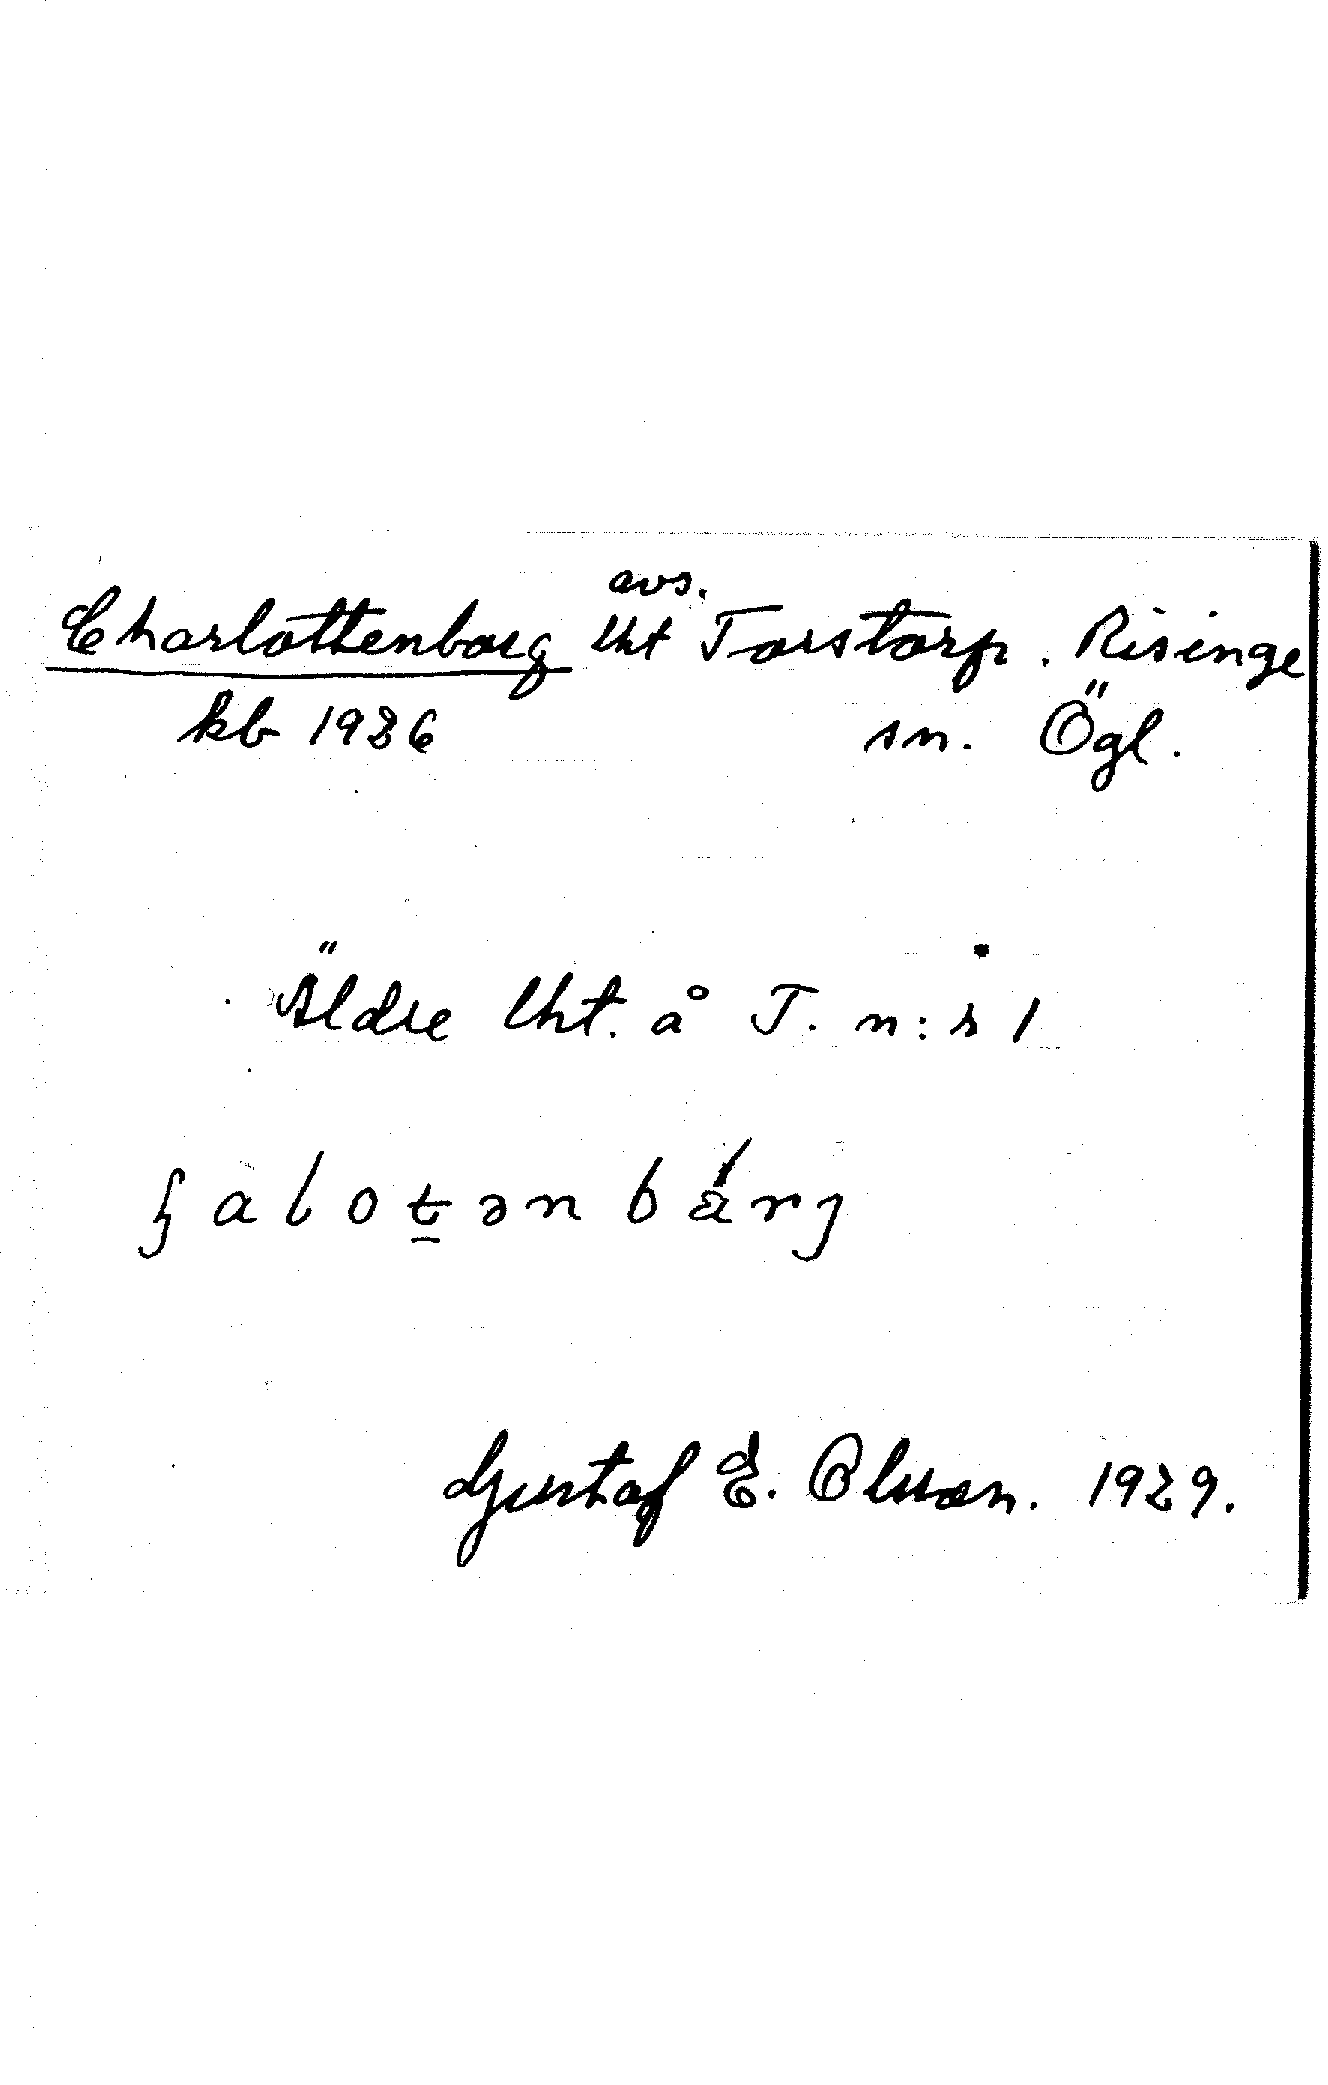 avs.
Charlottenborg lht Torstorp. Risinge
kb 1936 sn. Ögl.
Äldre lht. å T. n:r 1
ʂalotənbårj
Gustaf E. Olsson. 1929.